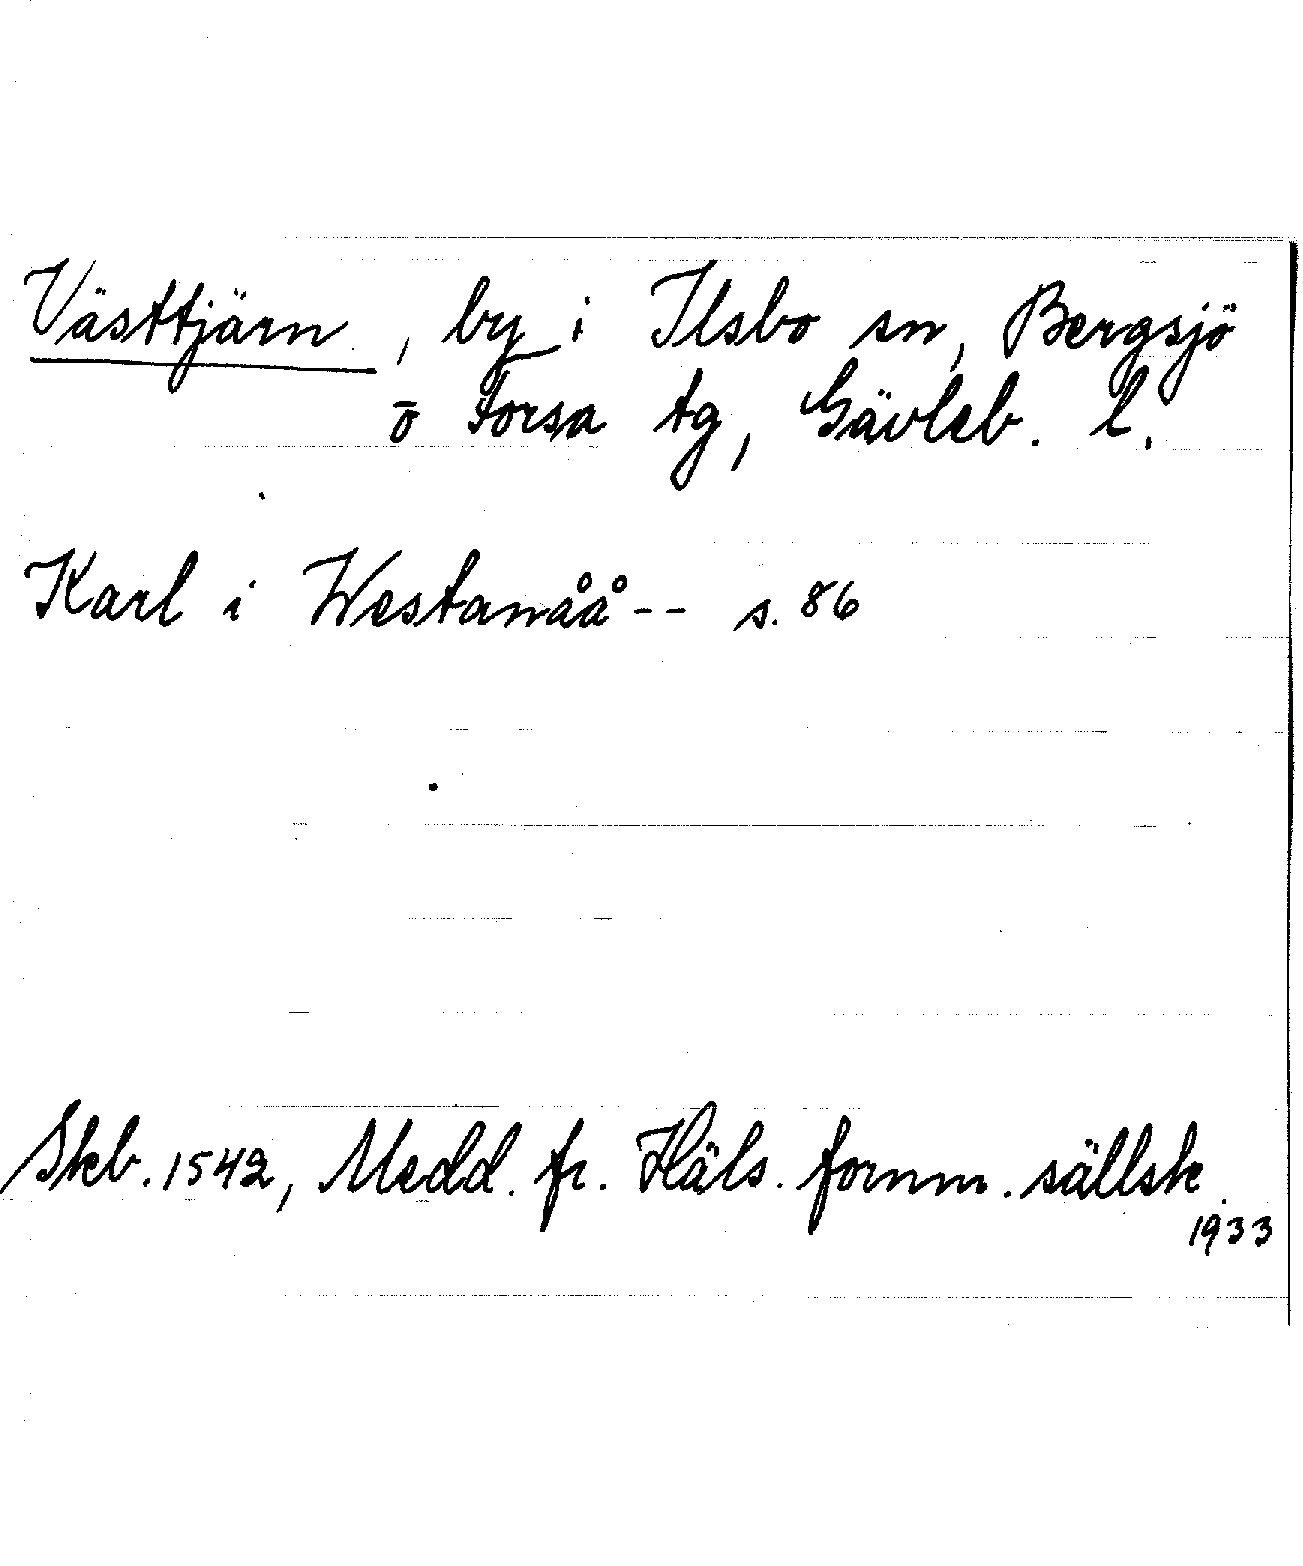 Västtjärn, by i Ilsbo sn, Bergsjö
o Forsa tg, Gävleb. l.
Karl i Westanåå -- s. 86
Skb. 1542, Medd. fr. Häls. fornm. sällsk.
1933